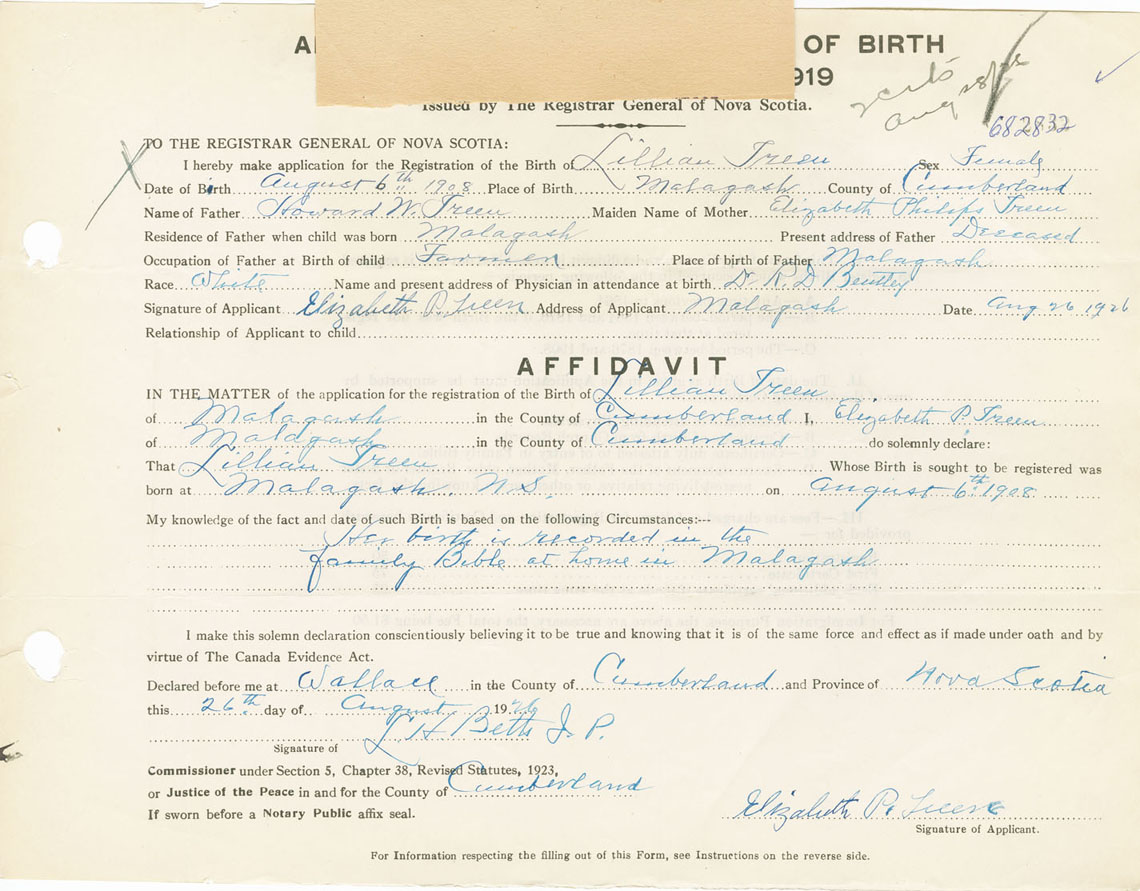 OF BIRTH
919
Issued by The Registrar General of Nova Scotia.
certs
Aug 28/72
682832
TO THE REGISTRAR GENERAL OF NOVA SCOTIA:
I hereby make application for the Registration of the Birth of Lillian Treen Sex Female
Date of Birth August 6th 1908 Place of Birth Malagash County of Cumberland
Name of Father Howard W. Treen Maiden Name of Mother Elizabeth Philips Treen
Residence of Father when child was born Malagash Present address of Father Deceased
Occupation of Father at Birth of child Farmer Place of birth of Father Malagash
Race White Name and present address of Physician in attendance at birth Dr R. D Bentley
Signature of Applicant Elizabeth P. Treen Address of Applicant Malagash Date Aug 26 1926
Relationship of Applicant to child
AFFIDAVIT
IN THE MATTER of the application for the registration of the Birth of Lillian Treen
of Malagash in the County of Cumberland I, Elizabeth P. Treen
of Malagash in the County of Cumberland do solemnly declare:
That Lillian Treen Whose Birth is sought to be registered was
born at Malagash, N.S. on August 6th 1908
My knowledge of the fact and date of such Birth is based on the following Circumstances:---
Her birth is recorded in the
family Bible at home in Malagash
I make this solemn declaration conscientiously believing it to be true and knowing that it is of the same force and effect as if made under oath and by
virtue of The Canada Evidence Act.
Declared before me at Wallace in the County of Cumberland and Province of Nova Scotia
this 26th day of August 1926
L H Betts J. P.
Signature of
Commissioner under Section 5, Chapter 38, Revised Statutes, 1923,
or Justice of the Peace in and for the County of Cumberland
If sworn before a Notary Public affix seal.
Elizabeth P. Treen
Signature of Applicant.
For Information respecting the filling out of this Form, see Instructions on the reverse side.